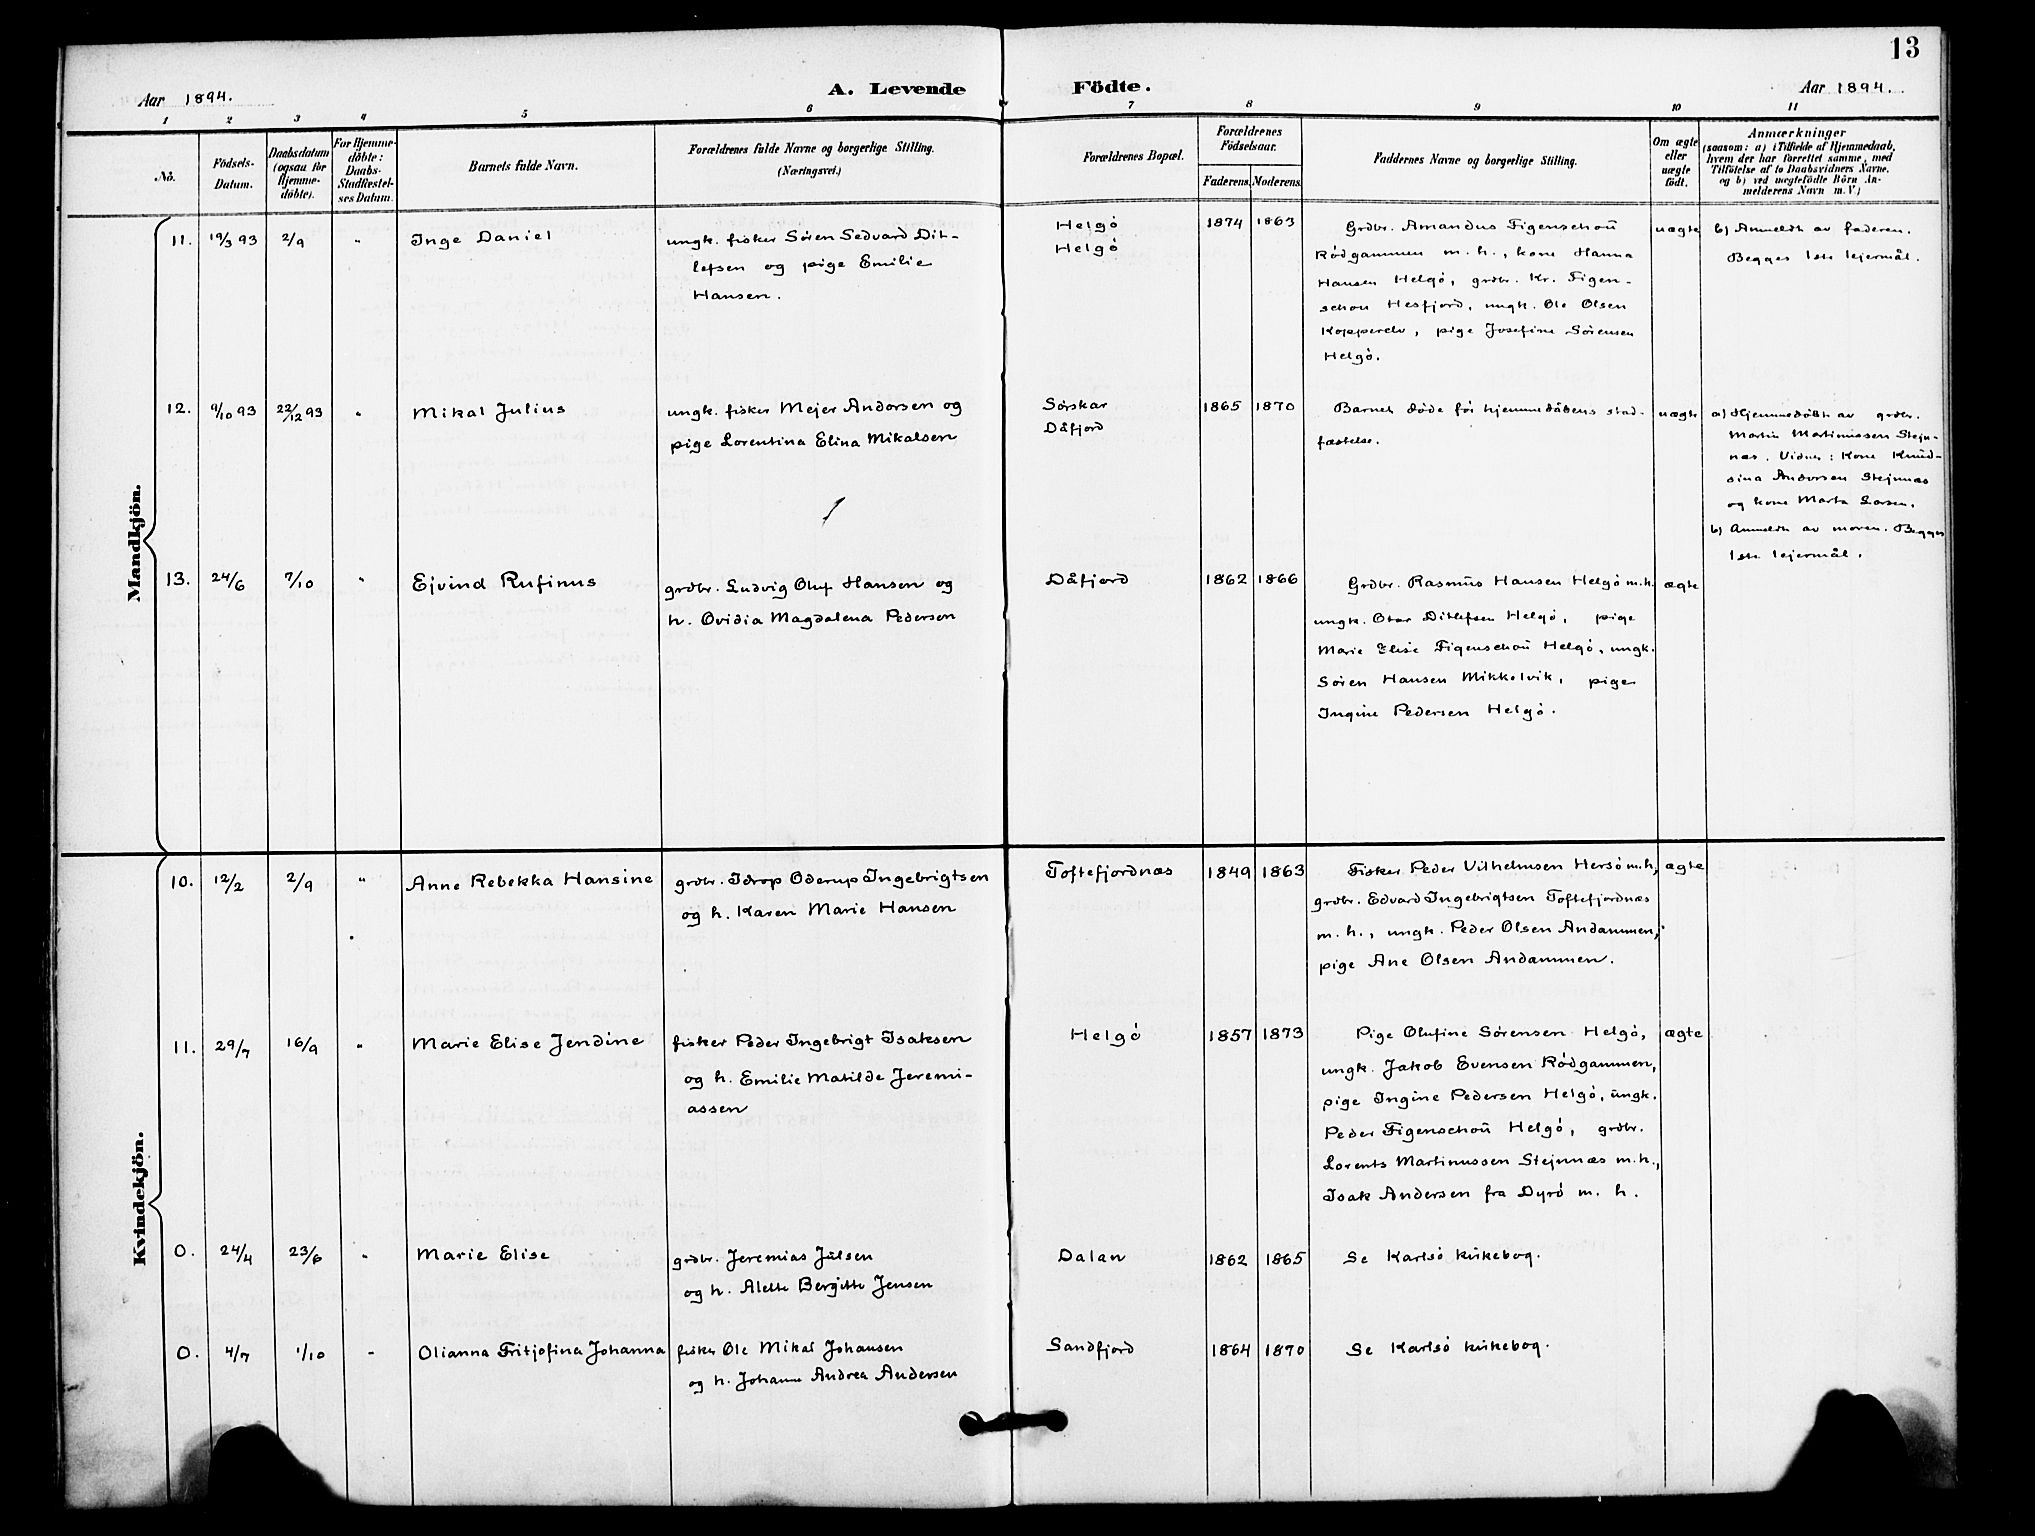 13
Aar 1894.
A. Levende Födte.
Aar 1894.
1 2 3 4 5 6 7 8 9 10 11
No.
Födsels-
Datum.
Daabsdatum
(ogsaa for
Hjemme-
döbte).
For Hjemme-
döbte:
Daabs-
Stadfæstel-
ses Datum.
Barnets fulde Navn.
Forældrenes fulde Navne og borgerlige Stilling.
(Næringsvei.)
Forældrenes Bopæl.
Forældrenes
Födselsaar.
Faderens. Moderens.
Faddernes Navne og borgerlige Stilling.
Om ægte
eller
uægte
födt.
Anmærkninger
(saasom: a) i Tilfælde af Hjemmedaab,
hvem der har forrettet samme, med
Tilföielse af to Daabsvidners Navne,
og b) ved uægtefödte Börn An-
melderens Navn m. V.)
Mandkjön.
11. 19/3 93 2/9 " Inge Daniel
ungk. fisker Sören Sedvard Dit-
lefsen og pige Emilie
Hansen.
Helgö
Helgö
1874 1863
Grdbr. Amandus Figenschoū
Rödgammen m. h., kone Hanna
Hansen Helgö, grdbr. Kr. Figen-
schou Hesfjord, ungk. Ole Olsen
Kopperelv, pige Josefine Sörensen
Helgö.
uægte
b) Anmeldt av faderen.
Begges 1ste lejermål.
12. 9/10 93 22/12 93 " Mikal Julius
ungk. fisker Mejer Andorsen og
pige Lorentina Elina Mikalsen
Sörskar
Dåfjord
1865 1870
Barnet döde för hjemmedåbens stad-
fæstelse.
uægte
a) Hjemmedöbt av grdbr.
Martin Martinussen Stejn-
næs. Vidner: Kone Knūd-
sina Andorsen Stejnnæs
og kone Marta Larsen.
b) Anmeldt av moren. Begges
1ste lejermål.
13. 24/6 7/10 " Ejvind Rufinus
grdbr. Ludvig Oluf Hansen og
h. Ovidia Magdalena Pedersen
Dåfjord
1862 1866
Grdbr. Rasmūs Hansen Helgö m.h.
ungk. Otar Ditlefsen Helgö, pige
Marie Elise Figenschoū Helgö, ungk.
Sören Hansen Mikkelvik, pige
Ingine Pedersen Helgö.
ægte
Kvindekjön.
10. 12/2 2/9 " Anne Rebekka Hansine
grdbr. Idrop Oderup Ingebrigtsen
og h. Karen Marie Hansen
Toftefjordnæs
1849 1863
Fisker Peder Vilhelmsen Hersö m.h,
grdbr. Edvard Ingebrigtsen Toftefjordnæs
m. h., ungk. Peder Olsen Andammen,
pige Ane Olsen Andammen.
ægte
11. 29/7 16/9 " Marie Elise Jendine
fisker Peder Ingebrigt Isaksen
og h. Emilie Matilde Jeremi-
assen
Helgö
1857 1873
Pige Olufine Sörensen Helgö,
ungk. Jakob Evensen Rödgammen,
pige Ingine Pedersen Helgö, ūngk.
Peder Figenschoū Helgö, grdbr.
Lorents Martinussen Stejnnæs m.h.,
Isak Andersen fra Dyrö m. h.
ægte
0. 24/4 23/6 " Marie Elise
grdbr. Jeremias Jūlsen
og h. Alette Bergitte Jensen
Dalan
1862 1865
Se Karlsö kirkebog.
0. 4/7 1/10 " Olianna Fritjofina Johanna
fisker Ole Mikal Johansen
og h. Johanne Andrea Andersen
Sandfjord
1864 1870
Se Karlsö kirkebog.